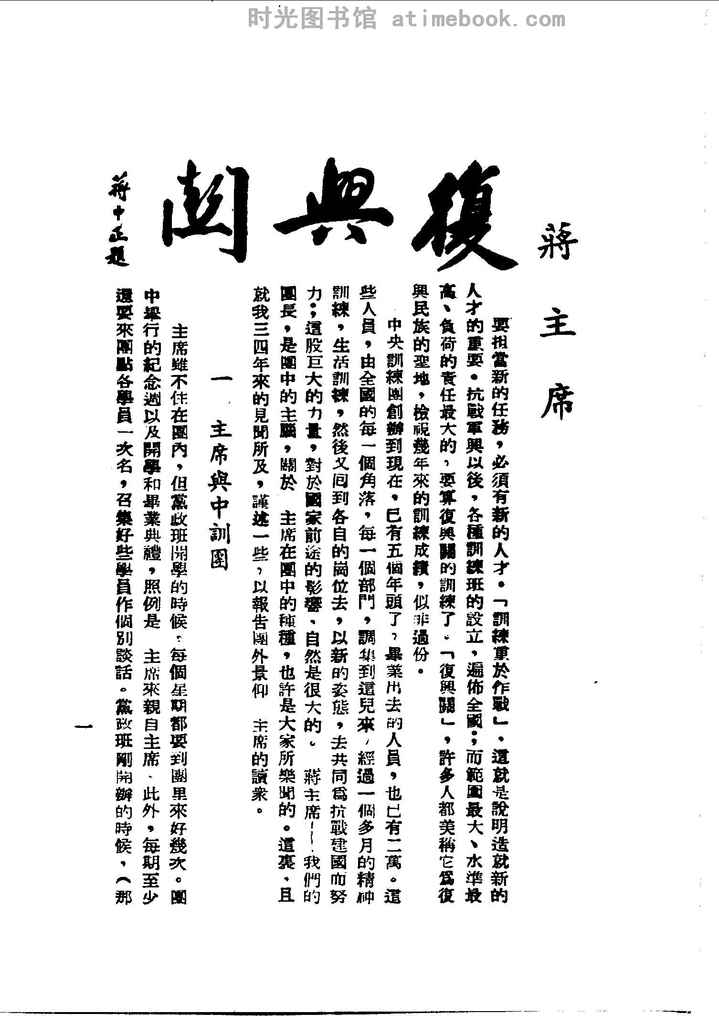 时光图书馆 atimebook.com
蔣主席
復興關
蔣中正題
要担當新的任務，必須有新的人才。「訓練重於作戰」、這就是說明造就新的
人才的重要。抗戰軍興以後，各種訓練班的設立，遍佈全國；而範圍最大、水準最
高、負荷的責任最大的，要算復興關的訓練了。「復興關」，許多人都美稱它爲復
興民族的聖地，檢視幾年來的訓練成績，似非過份。
中央訓練團創辦到現在，已有五個年頭了，畢業出去的人員，也已有二萬。這
些人員，由全國的每一個角落，每一個部門，調集到這兒來，經過一個多月的精神
訓練，生活訓練，然後又回到各自的崗位去，以新的姿態，去共同爲抗戰建國而努
力；這股巨大的力量，對於國家前途的影響、自然是很大的。　蔣主席——我們的
團長，是團中的主腦，關於　主席在團中的種種，也許是大家所樂聞的。這裏、且
就我三四年來的見聞所及，謹述一些，以報告團外景仰　主席的讀衆。
一　主席與中訓團
主席雖不住在團內，但黨政班開學的時候，每個星期都要到團里來好幾次。團
中舉行的紀念週以及開學和畢業典禮，照例是　主席來親自主席、此外，每期至少
還要來團點各學員一次名，召集好些學員作個別談話。黨政班剛開辦的時候，（那
一